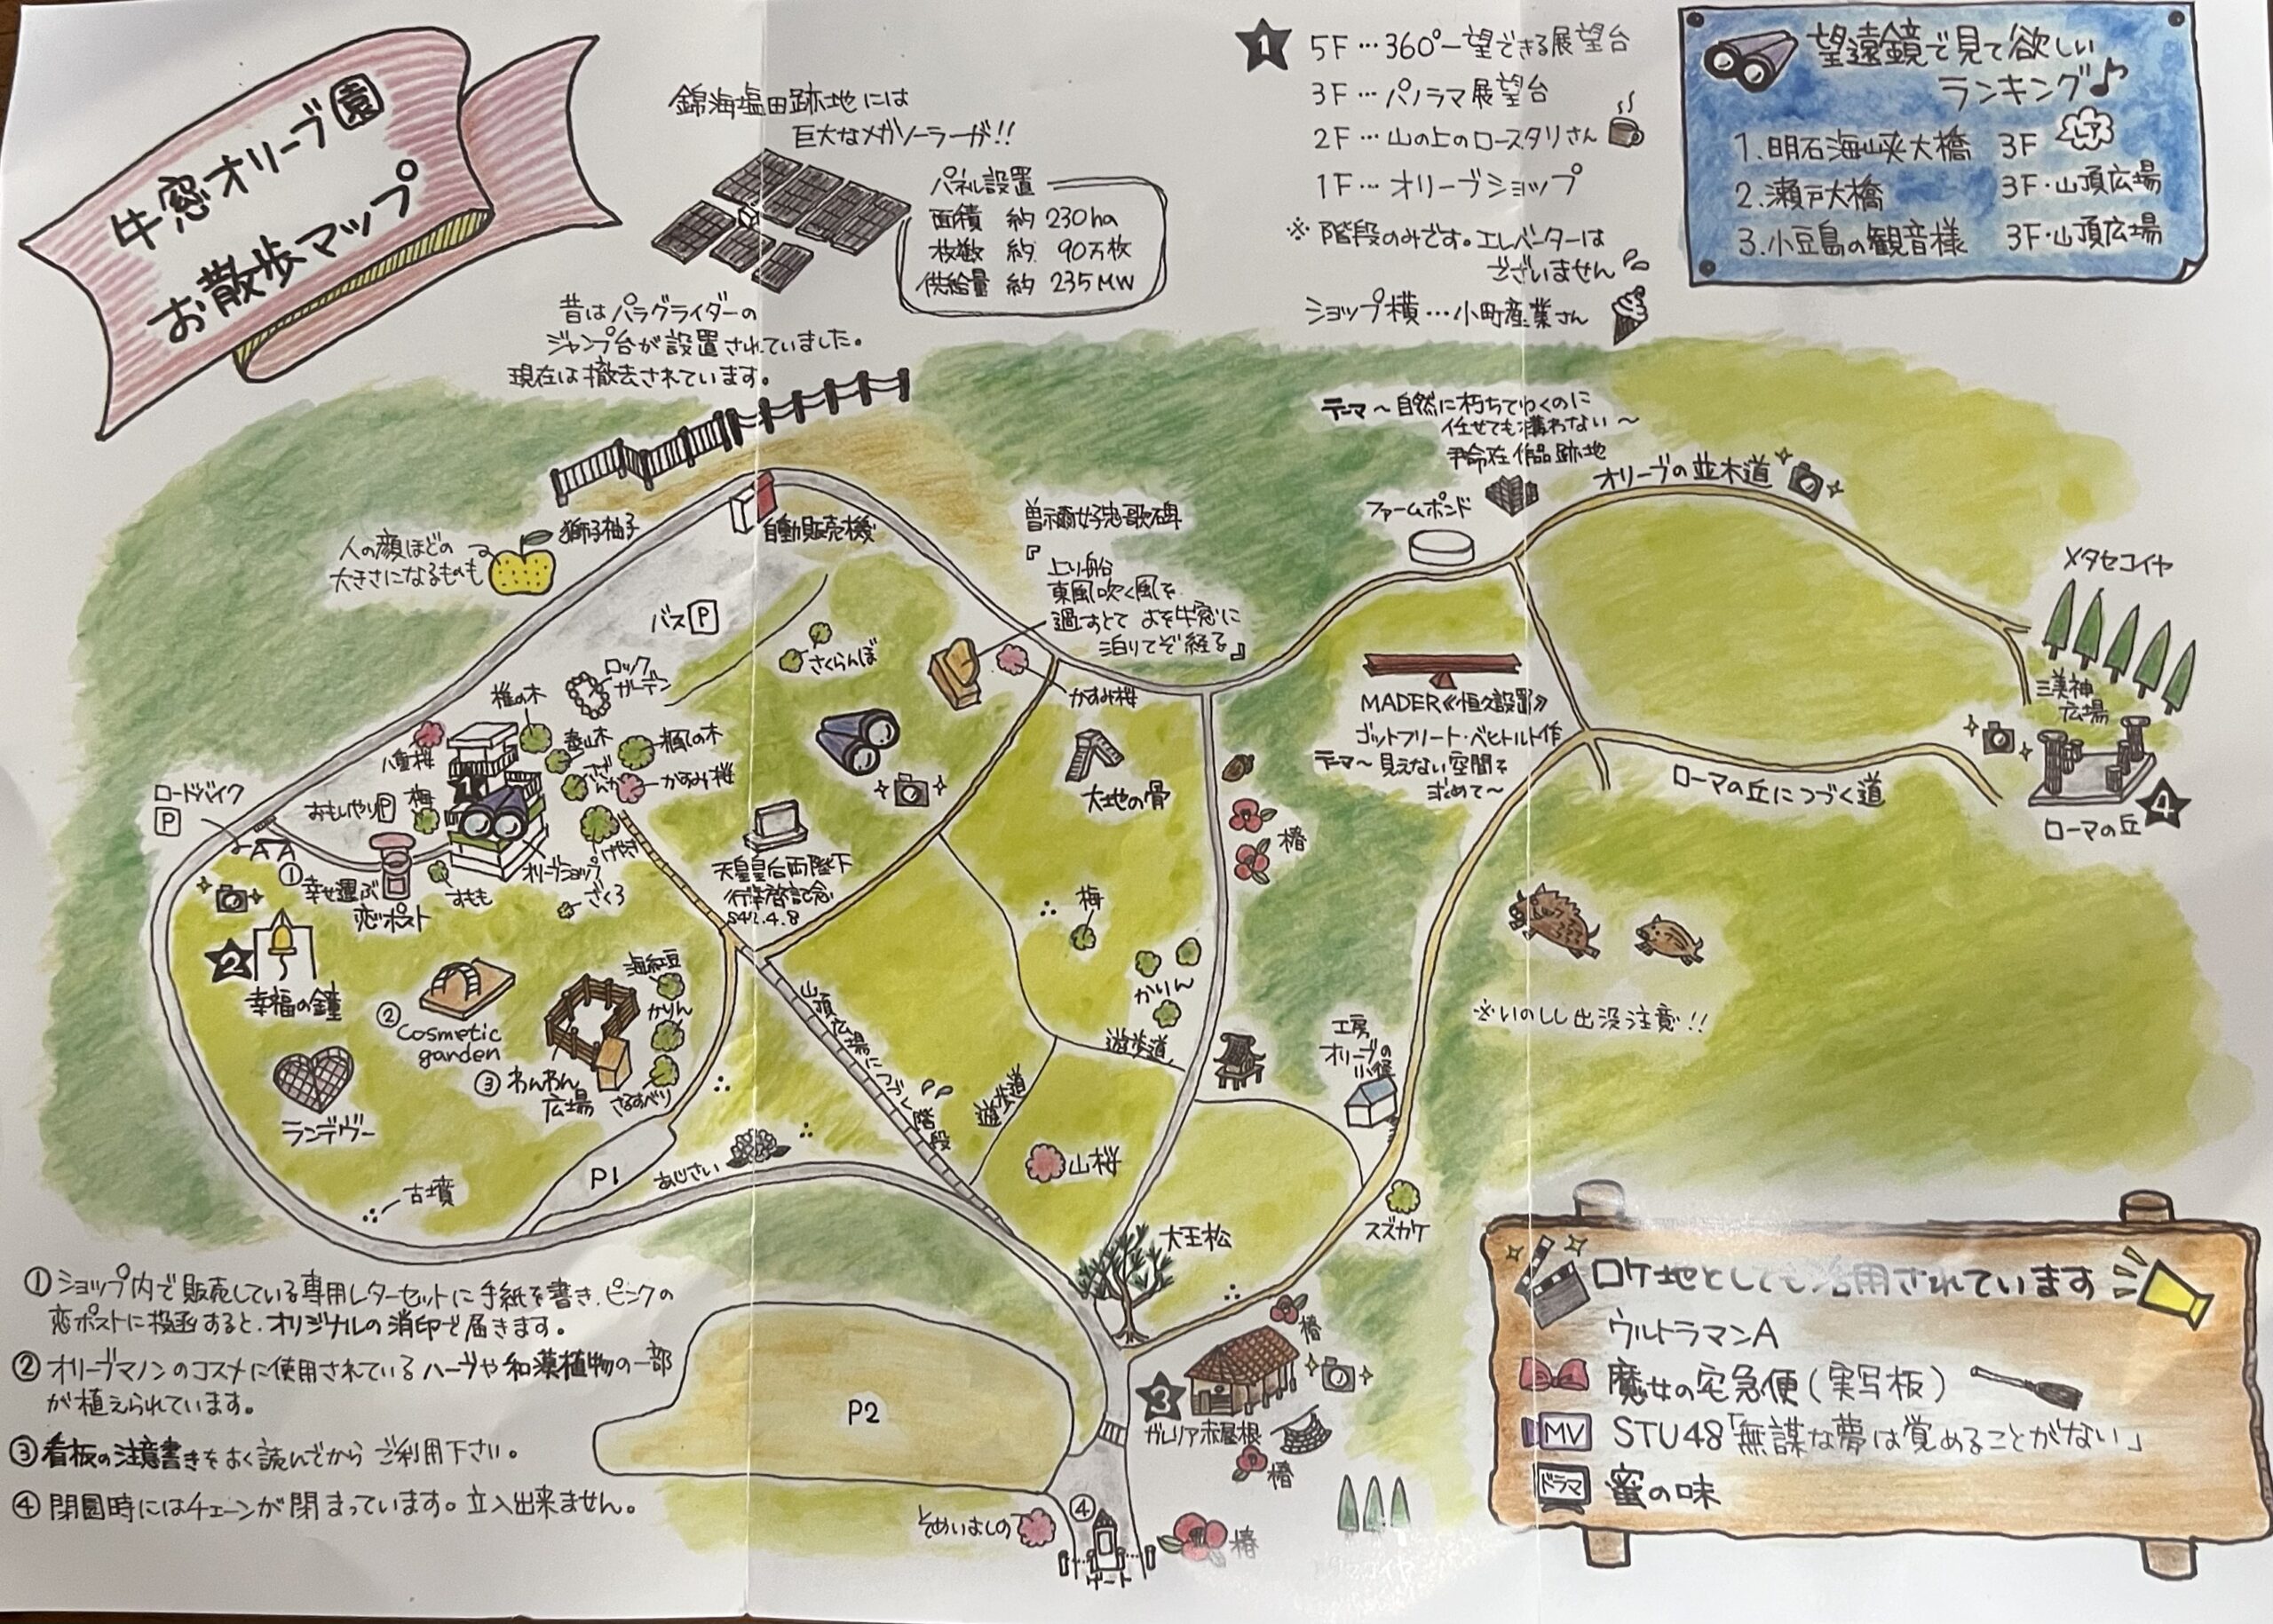 牛窓オリーブ園
お散歩マップ
錦海塩田跡地には
巨大なメガソーラーが!!
パネル設置
面積 約 230ha
枚数 約 90万枚
供給量 約 235MW
昔はパラグライダーの
ジャンプ台が設置されていました。
現在は撤去されています。
1
5F…360°一望できる展望台
3F…パノラマ展望台
2F…山の上のロースタリさん
1F…オリーブショップ
※階段のみです。エレベーターは
ございません
ショップ横…小町産業さん
望遠鏡で見て欲しい
ランキング♪
1.明石海峡大橋 3F レア
2.瀬戸大橋 3F・山頂広場
3.小豆島の観音様 3F・山頂広場
テーマ～自然に朽ちてゆくのに
任せても構わない～
作品跡地
ファームポンド
オリーブの並木道
メタセコイヤ
三美神
広場
4
ローマの丘
ローマの丘につづく道
MADER《恒久設置》
ゴットフリート・ベヒトルト作
テーマ～見えない空間を
求めて～
※いのしし出没注意!!
獅子柚子
人の顔ほどの
大きさになるものも
自動販売機
バスP
曽禰好忠歌碑
『上り船
東風吹く風を
過すとて よを牛窓に
泊りてぞ経る』
さくらんぼ
かすみ桜
ロック
ガーデン
椎の木
泰山木
楓の木
さざんか
かすみ桜
八重桜
梅
おもいやりP
ロードバイク
P
1
①幸せ運ぶ
恋ポスト
すもも
オリーブショップ
けやき
ざくろ
天皇皇后両陛下
行幸啓記念
S42.4.8
大地の骨
椿
梅
かりん
遊歩道
遊歩道
山頂広場につづく階段
2
幸福の鐘
②
cosmetic
garden
③わんわん
広場
海紅豆
かりん
さるすべり
ランデヴー
古墳
P1
あじさい
山桜
工房
オリーブの
小径
スズカケ
大王松
椿
3
ガレリア赤屋根
椿
P2
そめいよしの
④
ゲート
椿
①ショップ内で販売している専用レターセットに手紙を書き、ピンクの
恋ポストに投函すると、オリジナルの消印で届きます。
②オリーブマノンのコスメに使用されているハーブや和漢植物の一部
が植えられています。
③看板の注意書きをよく読んでからご利用下さい。
④閉園時にはチェーンが閉まっています。立入出来ません。
ロケ地としても活用されています
ウルトラマンA
魔女の宅急便(実写板)
MV STU48「無謀な夢は覚めることがない」
ドラマ 蜜の味